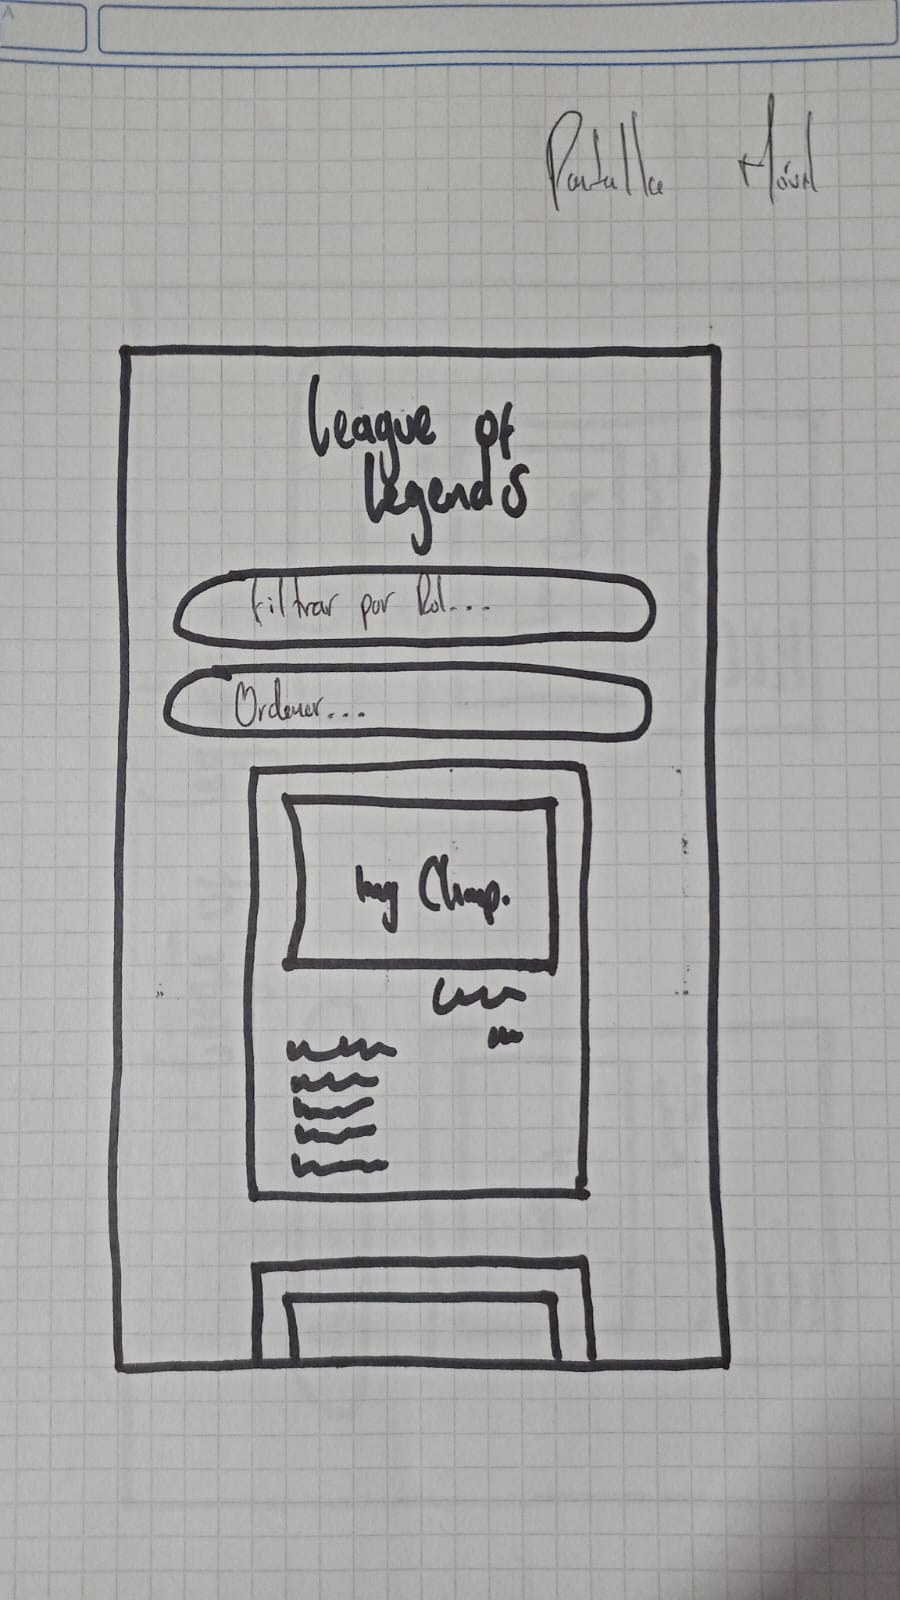 A
Pantalla Móvil
League of
Legends
Filtrar por Rol...
Ordenar...
Img Champ.